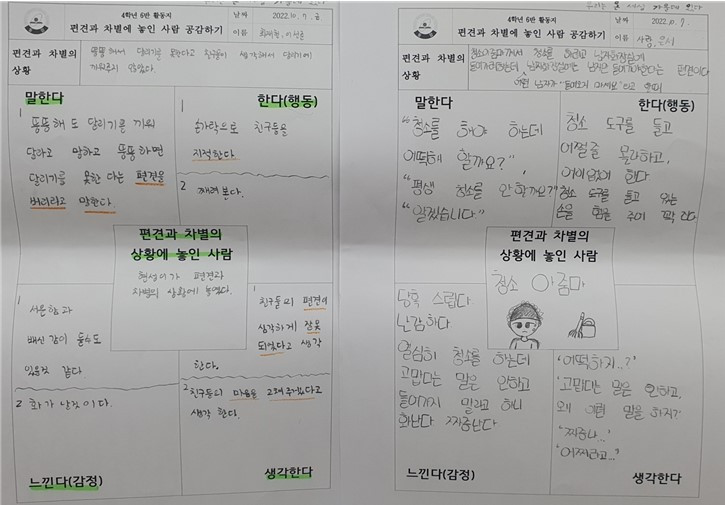 4학년 6반 활동지
편견과 차별에 놓인 사람 공감하기
날짜
2022.10.7.금
이름
편견과 차별의
상황
뚱뚱해서 달리기를 못한다고 친구들이 생각해서 달리기에
끼워주지 않았다.
말한다
1
뚱뚱해도 달리기를 끼워
달라고 말하고 뚱뚱하면
달리기를 못한다는 편견을
버리라고 말한다.
한다(행동)
1
손가락으로 친구들을
지적한다.
2 째려본다.
편견과 차별의
상황에 놓인 사람
편견과
차별의 상황에 놓였다.
서운함과
배신감이 들수도
있을것 같다
2 화가 났것이다.
느낀다(감정)
1
친구들의 편견이
심각하게 잘못
되었다고 생각
한다.
2 친구들의 마음을 고쳐주겠다고
생각한다.
생각한다
4학년 6반 활동지
편견과 차별에 놓인 사람 공감하기
날짜
2022.10.7.
이름
사랑, 은시
편견과 차별의
상황
청소아줌마께서 청소를 하려고 남자화장실에
들어가려는데 남자화장실에는 남자만 들어가야한다는 편견이다
어떤 남자가 "들어오지 마세요"라고 했다
말한다
"청소를 해야 하는데
어떡해 할까요?"
"평생 청소를 안 할까요?"
"알겠습니다"
한다(행동)
청소 도구를 들고
어쩔줄 몰라하고,
어이없어 한다
청소 도구를 들고 있는
손을 힘을 주어 꽉 쥔다
편견과 차별의
상황에 놓인 사람
청소 아줌마
당혹 스럽다
난감하다
열심히 청소를 하는데
고맙다는 말은 안하고
들어가지 말라고 하니
화난다 짜증난다
느낀다(감정)
'어떡하지..?'
'고맙다는 말은 안하고,
왜 이런 말을 하지?'
'짜증나...'
'어쩌라고...'
생각한다